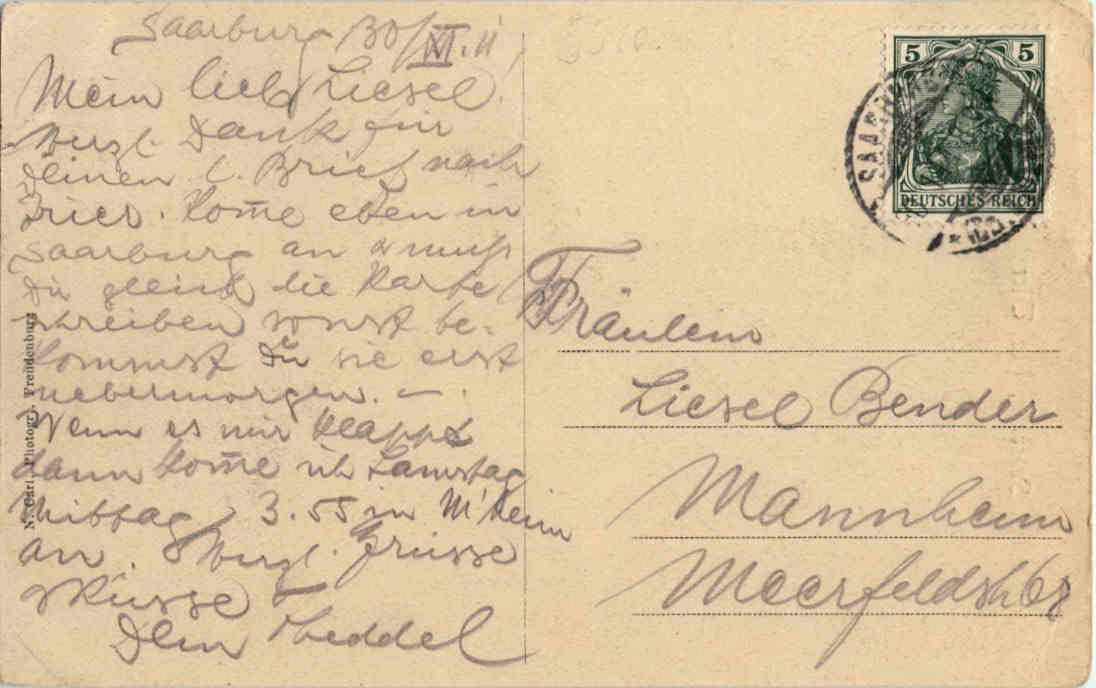 Saarburg 30/XI.11
Mein lieb Liesel!
Herzl. Dank für
Deinen l. Brief nach
Trier. Kom̄e eben in
Saarburg an & muß
Dir gleich die Karte
schreiben sonst be-
kommst Du sie erst
uebermorgen. —
Wenn es mir klappt
dann kom̄e ich Samstag
Mittag 3.55 in M'heim
an. Herzl. Grüsse
& Küsse
Dein
N. Carl, Photogr., Freudenburg
5 5
DEUTSCHES REICH
SAARBURG
Fräulein
Liesel Bender
Mannheim
Meerfeldstr